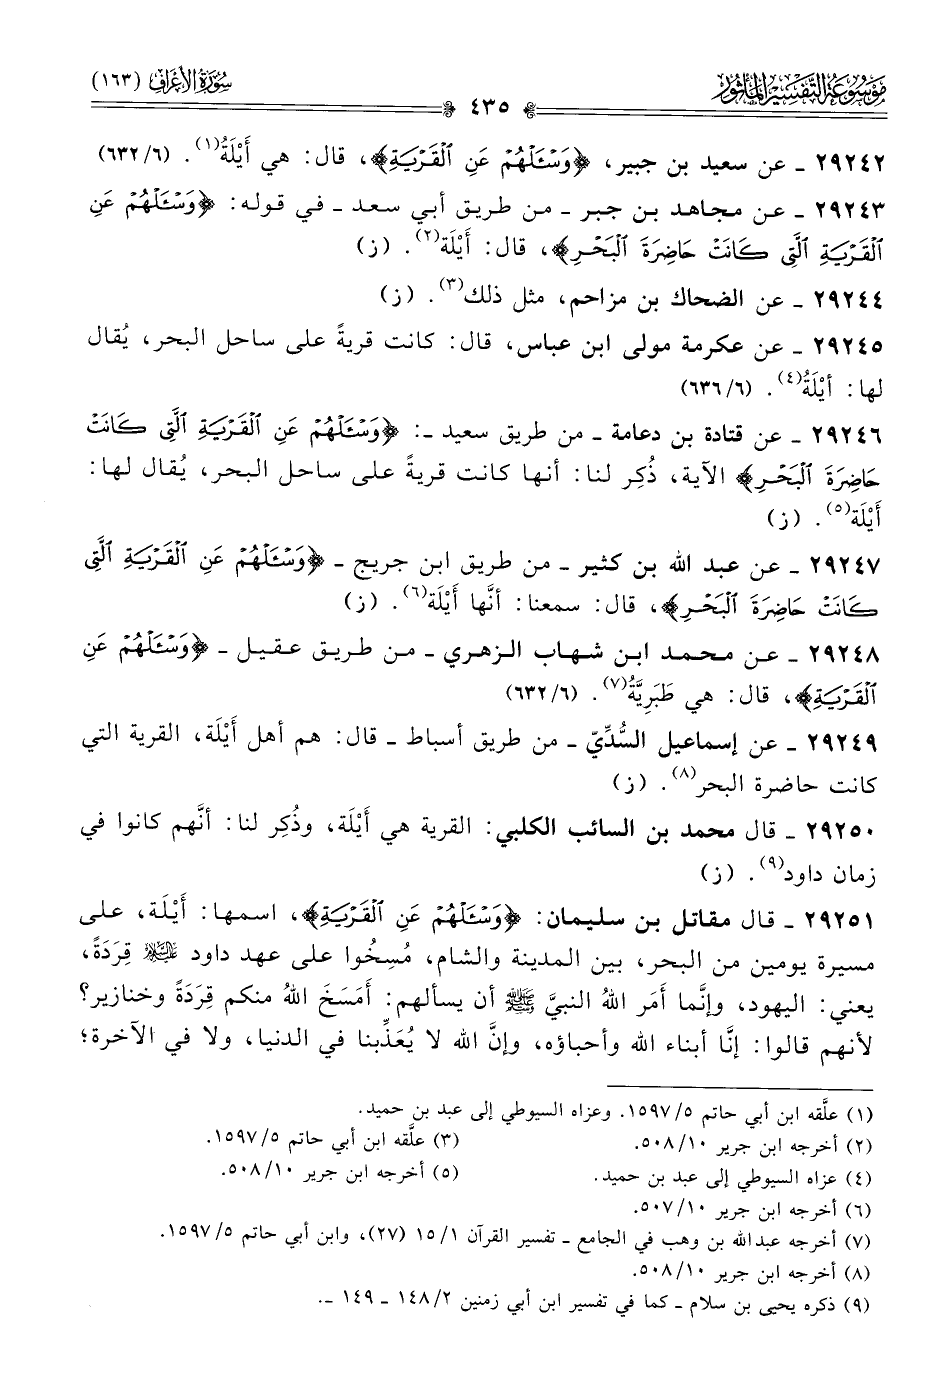 مَوْسُوعَة التَّفْسِيْرِ المَأْثُور
٤٣٥
سُورَةُ الأَعْرَافِ (١٦٣)
٢٩٢٤٢ ـ عن سعيد بن جبير، ﴿وَسْـَٔلْهُمْ عَنِ ٱلْقَرْيَةِ﴾، قال: هي أَيْلَةُ(١). (٦/ ٦٣٢)
٢٩٢٤٣ ـ عن مجاهد بن جبر ـ من طريق أبي سعد ـ في قوله: ﴿وَسْـَٔلْهُمْ عَنِ
ٱلْقَرْيَةِ ٱلَّتِى كَانَتْ حَاضِرَةَ ٱلْبَحْرِ﴾، قال: أَيْلَة(٢). (ز)
٢٩٢٤٤ ـ عن الضحاك بن مزاحم، مثل ذلك(٣). (ز)
٢٩٢٤٥ ـ عن عكرمة مولى ابن عباس، قال: كانت قريةً على ساحل البحر، يُقال
لها: أَيْلَةُ(٤). (٦/ ٦٣٦)
٢٩٢٤٦ ـ عن قتادة بن دعامة ـ من طريق سعيد ـ: ﴿وَسْـَٔلْهُمْ عَنِ ٱلْقَرْيَةِ ٱلَّتِى كَانَتْ
حَاضِرَةَ ٱلْبَحْرِ﴾ الآية، ذُكِر لنا: أنها كانت قريةً على ساحل البحر، يُقال لها:
أَيْلَة(٥). (ز)
٢٩٢٤٧ ـ عن عبد الله بن كثير ـ من طريق ابن جريج ـ ﴿وَسْـَٔلْهُمْ عَنِ ٱلْقَرْيَةِ ٱلَّتِى
كَانَتْ حَاضِرَةَ ٱلْبَحْرِ﴾، قال: سمعنا: أنَّها أَيْلَة(٦). (ز)
٢٩٢٤٨ ـ عن محمد ابن شهاب الزهري ـ من طريق عقيل ـ ﴿وَسْـَٔلْهُمْ عَنِ
ٱلْقَرْيَةِ﴾، قال: هي طَبَرِيَّةُ(٧). (٦/ ٦٣٢)
٢٩٢٤٩ ـ عن إسماعيل السُّدِّيّ ـ من طريق أسباط ـ قال: هم أهل أَيْلَة، القرية التي
كانت حاضرة البحر(٨). (ز)
٢٩٢٥٠ ـ قال محمد بن السائب الكلبي: القرية هي أَيْلَة، وذُكِر لنا: أنَّهم كانوا في
زمان داود(٩). (ز)
٢٩٢٥١ ـ قال مقاتل بن سليمان: ﴿وَسْـَٔلْهُمْ عَنِ ٱلْقَرْيَةِ﴾، اسمها: أَيْلَة، على
مسيرة يومين من البحر، بين المدينة والشام، مُسِخُوا على عهد داود عليه السلام قِرَدَةً،
يعني: اليهود، وإنَّما أمَر اللهُ النبيَّ ﷺ أن يسألهم: أَمَسَخَ اللهُ منكم قِرَدَةً وخنازير؟
لأنهم قالوا: إنَّا أبناء الله وأحباؤه، وإنَّ الله لا يُعَذِّبنا في الدنيا، ولا في الآخرة؛
(١) علَّقه ابن أبي حاتم ٥/ ١٥٩٧. وعزاه السيوطي إلى عبد بن حميد.
(٢) أخرجه ابن جرير ١٠/ ٥٠٨. (٣) علَّقه ابن أبي حاتم ٥/ ١٥٩٧.
(٤) عزاه السيوطي إلى عبد بن حميد. (٥) أخرجه ابن جرير ١٠/ ٥٠٨.
(٦) أخرجه ابن جرير ١٠/ ٥٠٧.
(٧) أخرجه عبد الله بن وهب في الجامع ـ تفسير القرآن ١/ ١٥ (٢٧)، وابن أبي حاتم ٥/ ١٥٩٧.
(٨) أخرجه ابن جرير ١٠/ ٥٠٨.
(٩) ذكره يحيى بن سلام ـ كما في تفسير ابن أبي زمنين ٢/ ١٤٨ ـ ١٤٩ ـ.